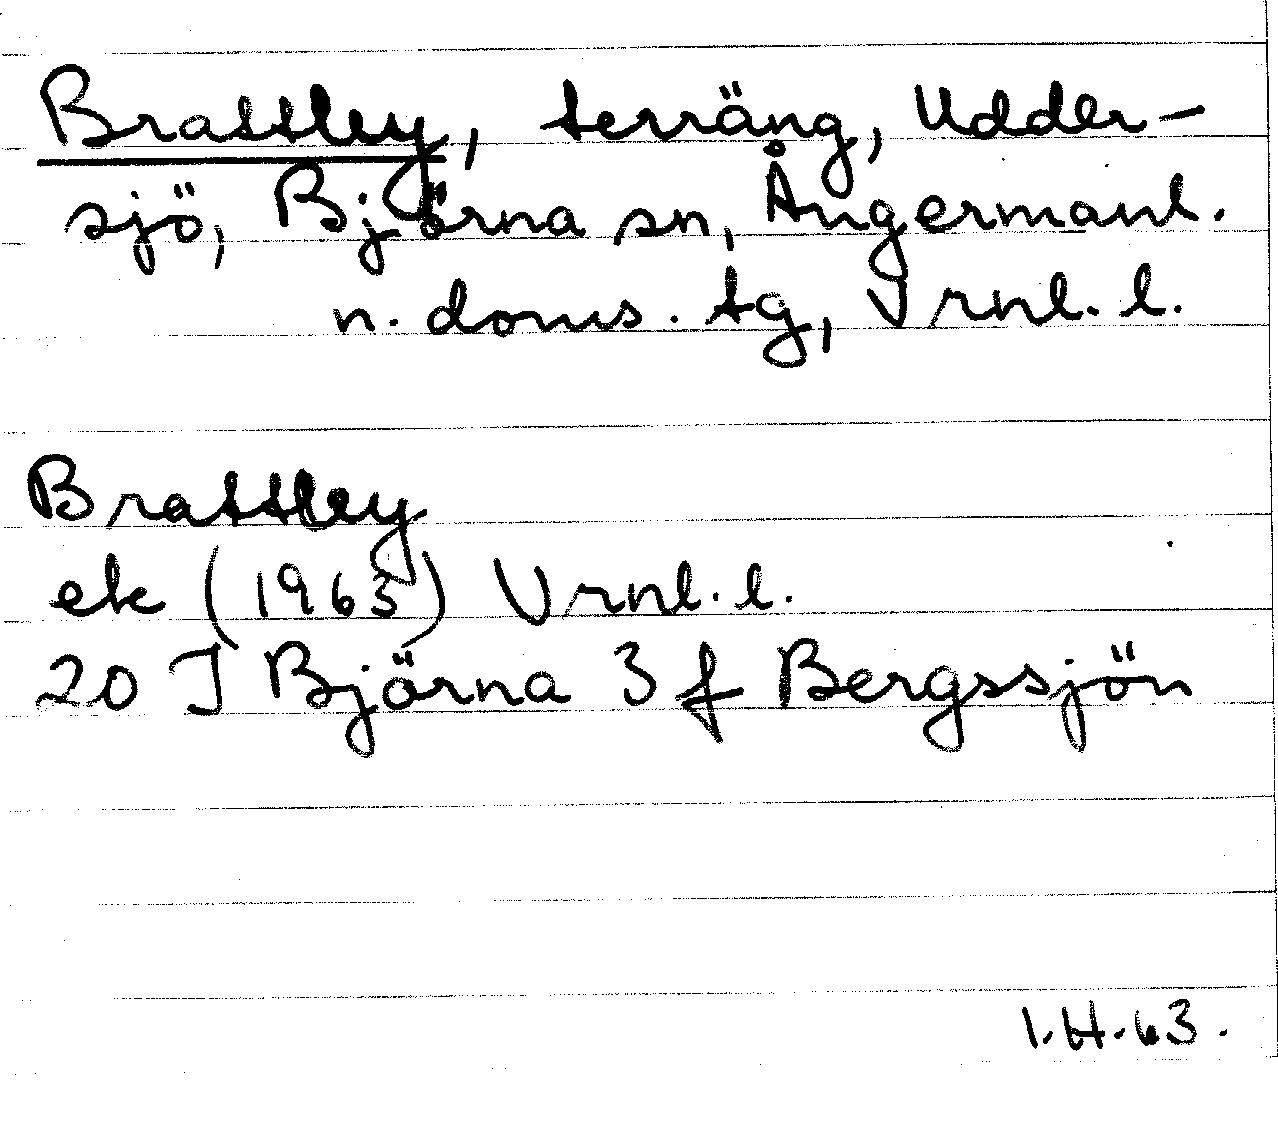 Brattley, terräng, Udder-
sjö, Björna sn, Ångermanl.
n. doms. tg, Vrnl. l.
Brattley
ek (1963) Vrnl. l.
20 J Björna 3 f Bergssjön
I.H.63.